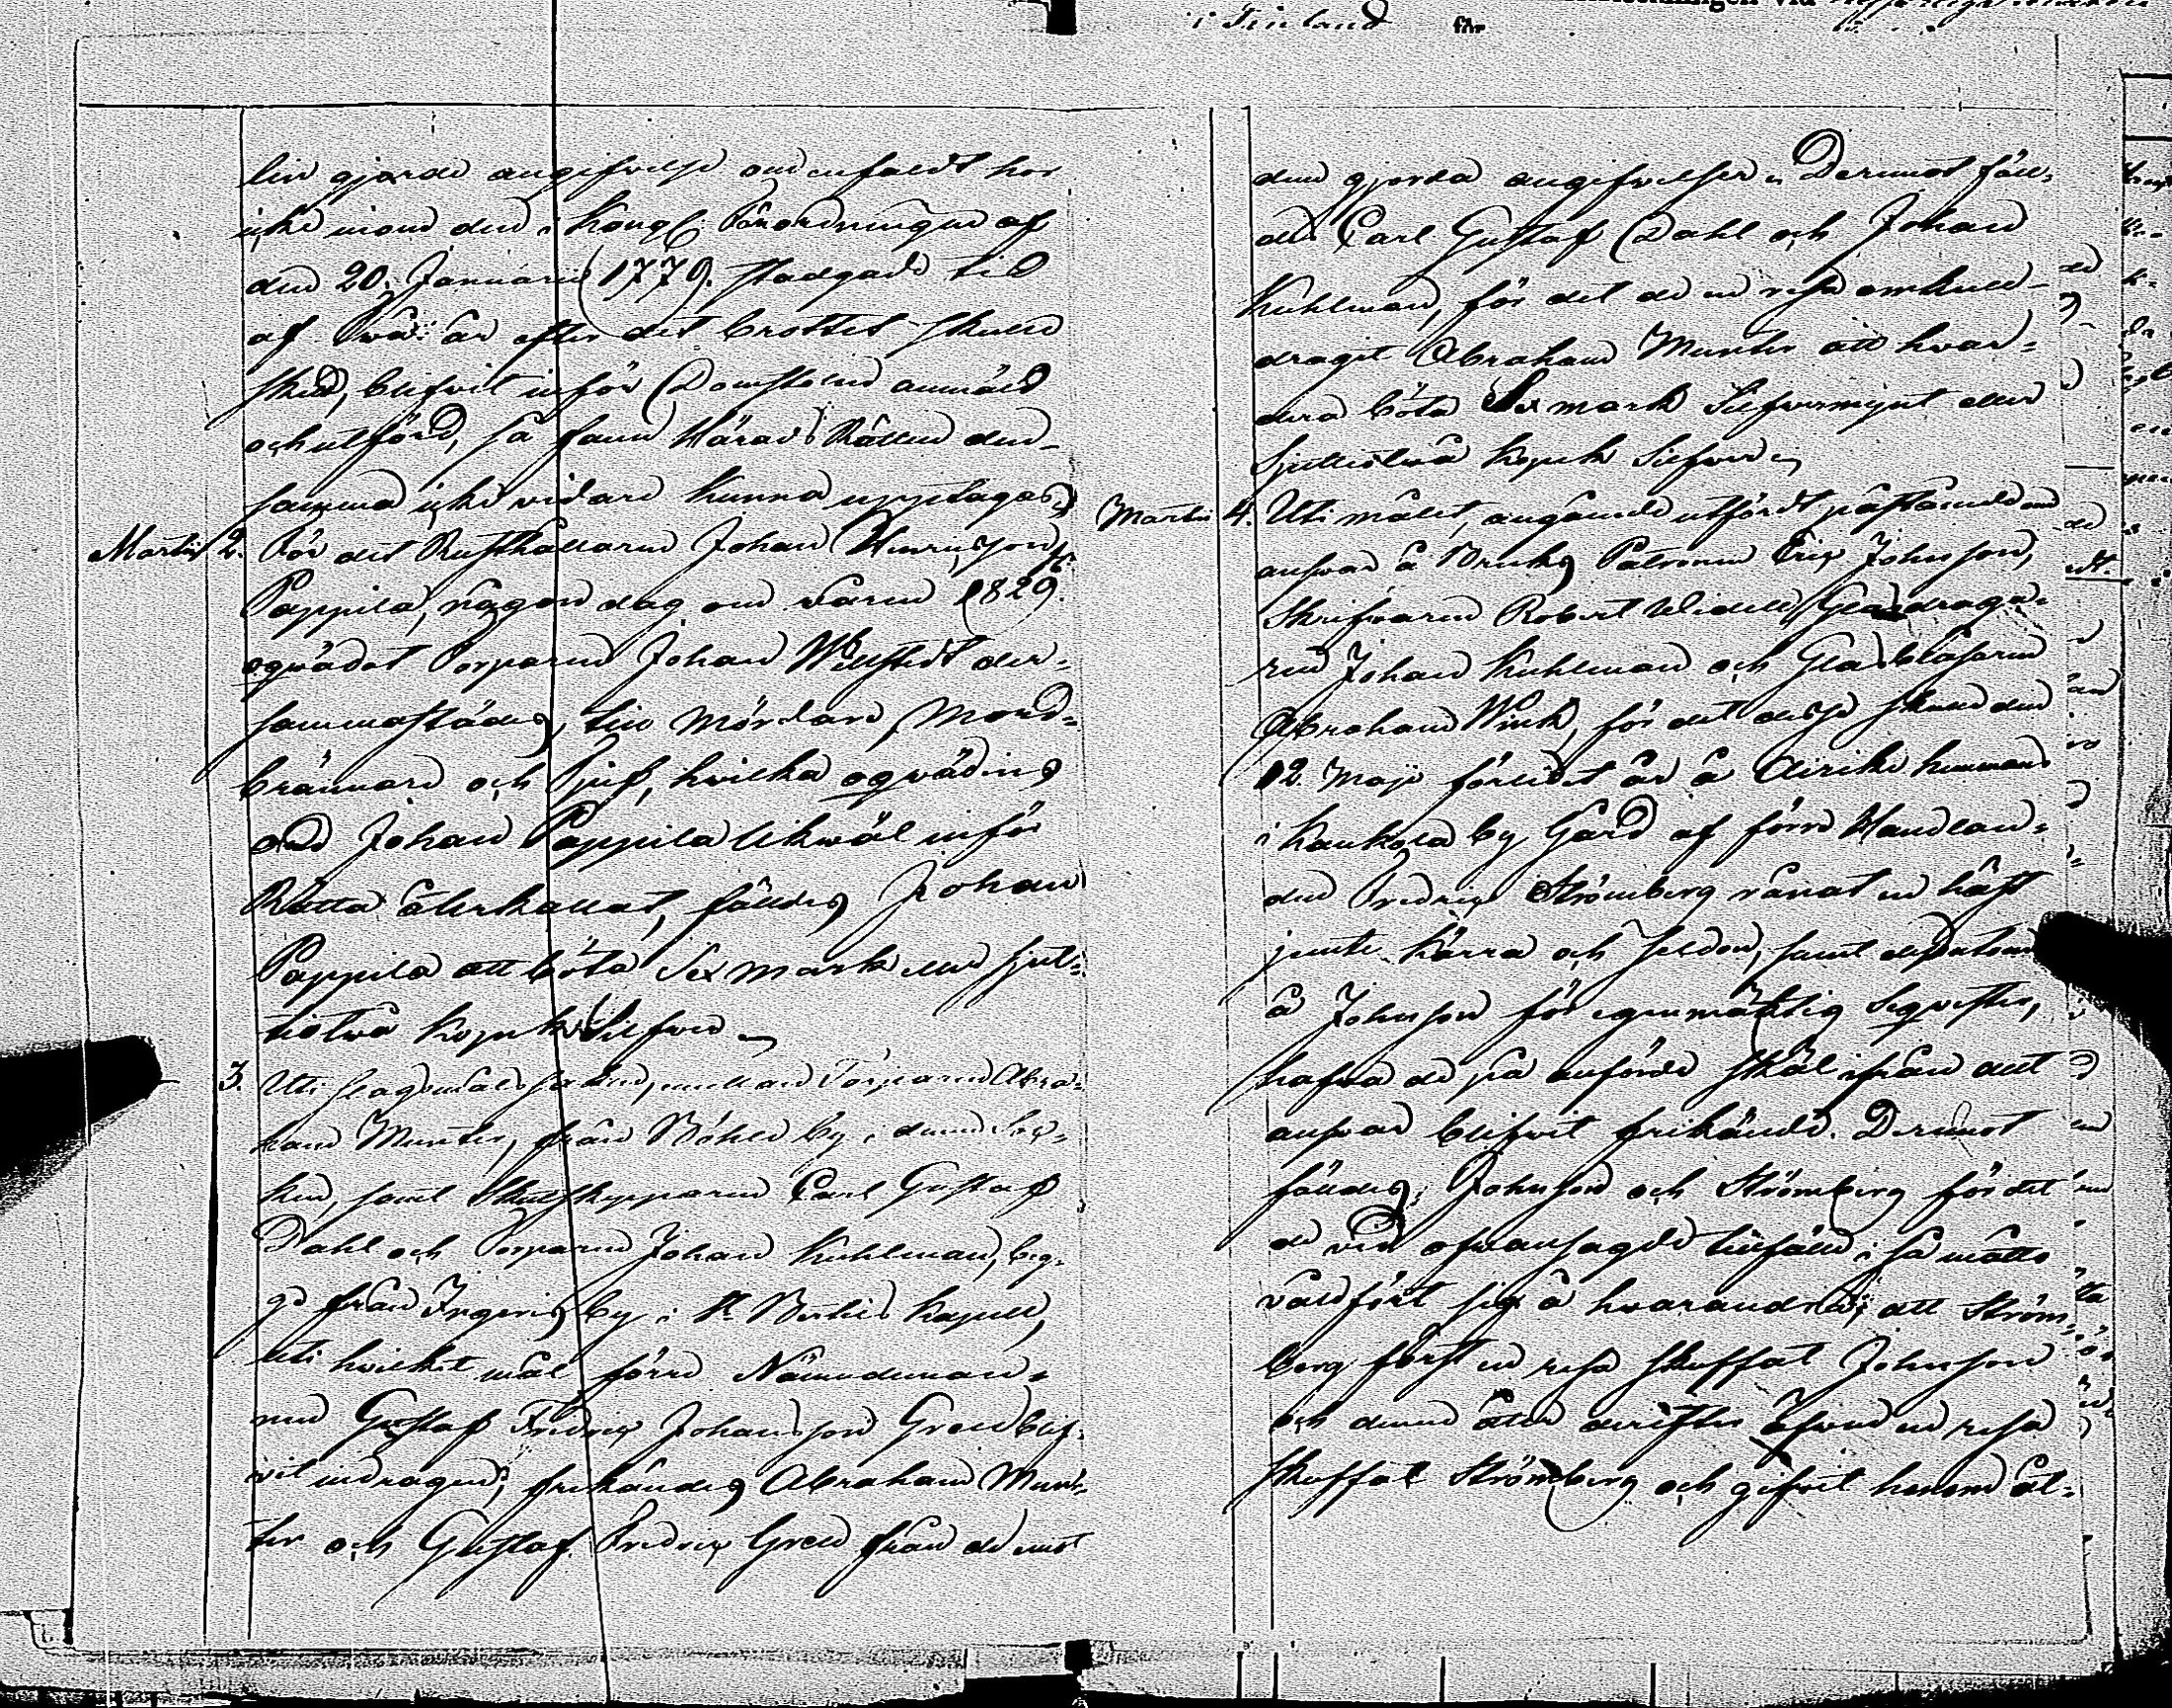 i Finland för
lin gjorde angifvelse om enfaldt hor
icke inom den i Kongl. Förordningen af
den 20. Januarii 1779. stadgade tid
af Två år efter det brottet skulle
skett, blifvit inför Domstolen anmäld
och utförd, så fann Härads Rätten den-
samma icke vidare kunna upptagas.
Martii 2. För det Rusthållaren Johan Henricsson
Pappila, någon dag om våren 1829.
oqvädat Torparen Johan Wellstedt der-
sammastädes, till Mördare, Mord-
brännare och Tjuf, hvilka oqvädins
ord Johan Pappila likwäl inför
Rätta återkallat, fälldes Johan
Pappila att böta Sex mark eller sjut-
tiotvå kopek Silfver.
3. Uti slagsmåls saken, mellan Torparen Abra-
ham Munter, från Böhle by i denna Soc-
ken, samt Skutskepparen Carl Gustaf
Dahl och Torparen Johan Kuhlman, beg-
ge från Ingeris by i St Bertils Kapell,
uti hvilket mål förre Nämndeman-
nen Gustaf Fredric Johansson Grell blif-
vit indragen, frikändes Abraham Mun-
ter och Gustaf Fredric Grell från de emot
dem gjorda angifvelser. Deremot fäll-
des Carl Gustaf Dahl och Johan
Kuhlman, för det de en resa omkull-
dragit Abraham Munter att hvar-
dera böta Sex mark Silfvermynt eller
Sjuttiotvå kopek Silfver.
Martii 4. Uti målet, angående utfördt påstående om
answar å Bruks Patronen Eric Johnsson,
Skrifvaren Robert Widell, Glasdraga-
ren Johan Kuhlman och Glasblåsaren
Abraham Winck, för det desse skulle den
12. Maji förlidet år å Alriks hemmans
i Kaukola by Gård af förre Handlan-
den Fredric Strömberg rånat en häst
jemte kärra och seldon, samt dessutom
å Johnsson för egenmäktig seqvester,
hafva de på anförde skäl ifrån allt
answar blifvit frikände. Deremot
fälldes Johnsson och Strömberg för det
de vid ofvansagde tillfälle i så måtto
våldfört sig å hvarandra, att Ström-
berg först en resa skuffat Johnsson
och denne åter derefter äfven en resa
skuffat Strömberg och gifvit honom ät-